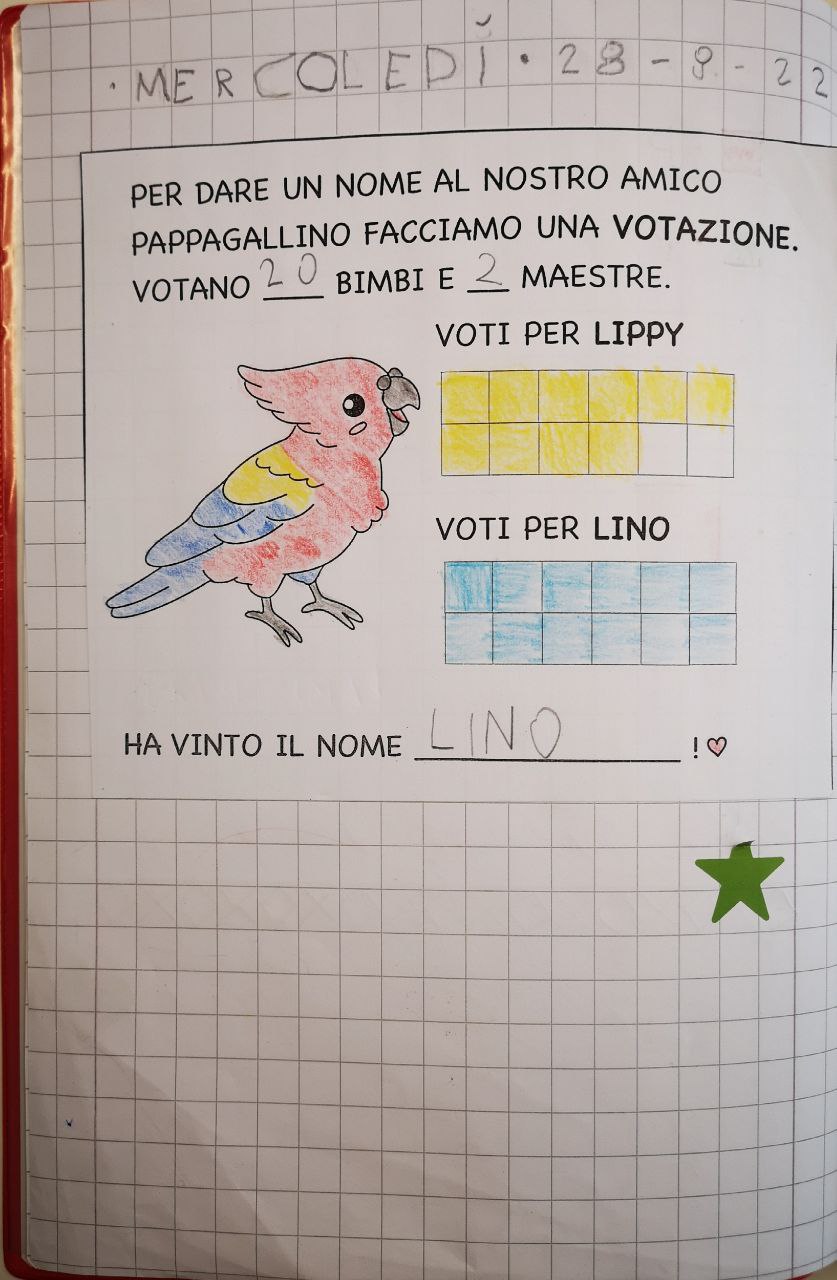 · MERCOLEDÌ · 28 - 9 - 22
PER DARE UN NOME AL NOSTRO AMICO
PAPPAGALLINO FACCIAMO UNA VOTAZIONE.
VOTANO 20 BIMBI E 2 MAESTRE.
VOTI PER LIPPY
VOTI PER LINO
HA VINTO IL NOME LINO !